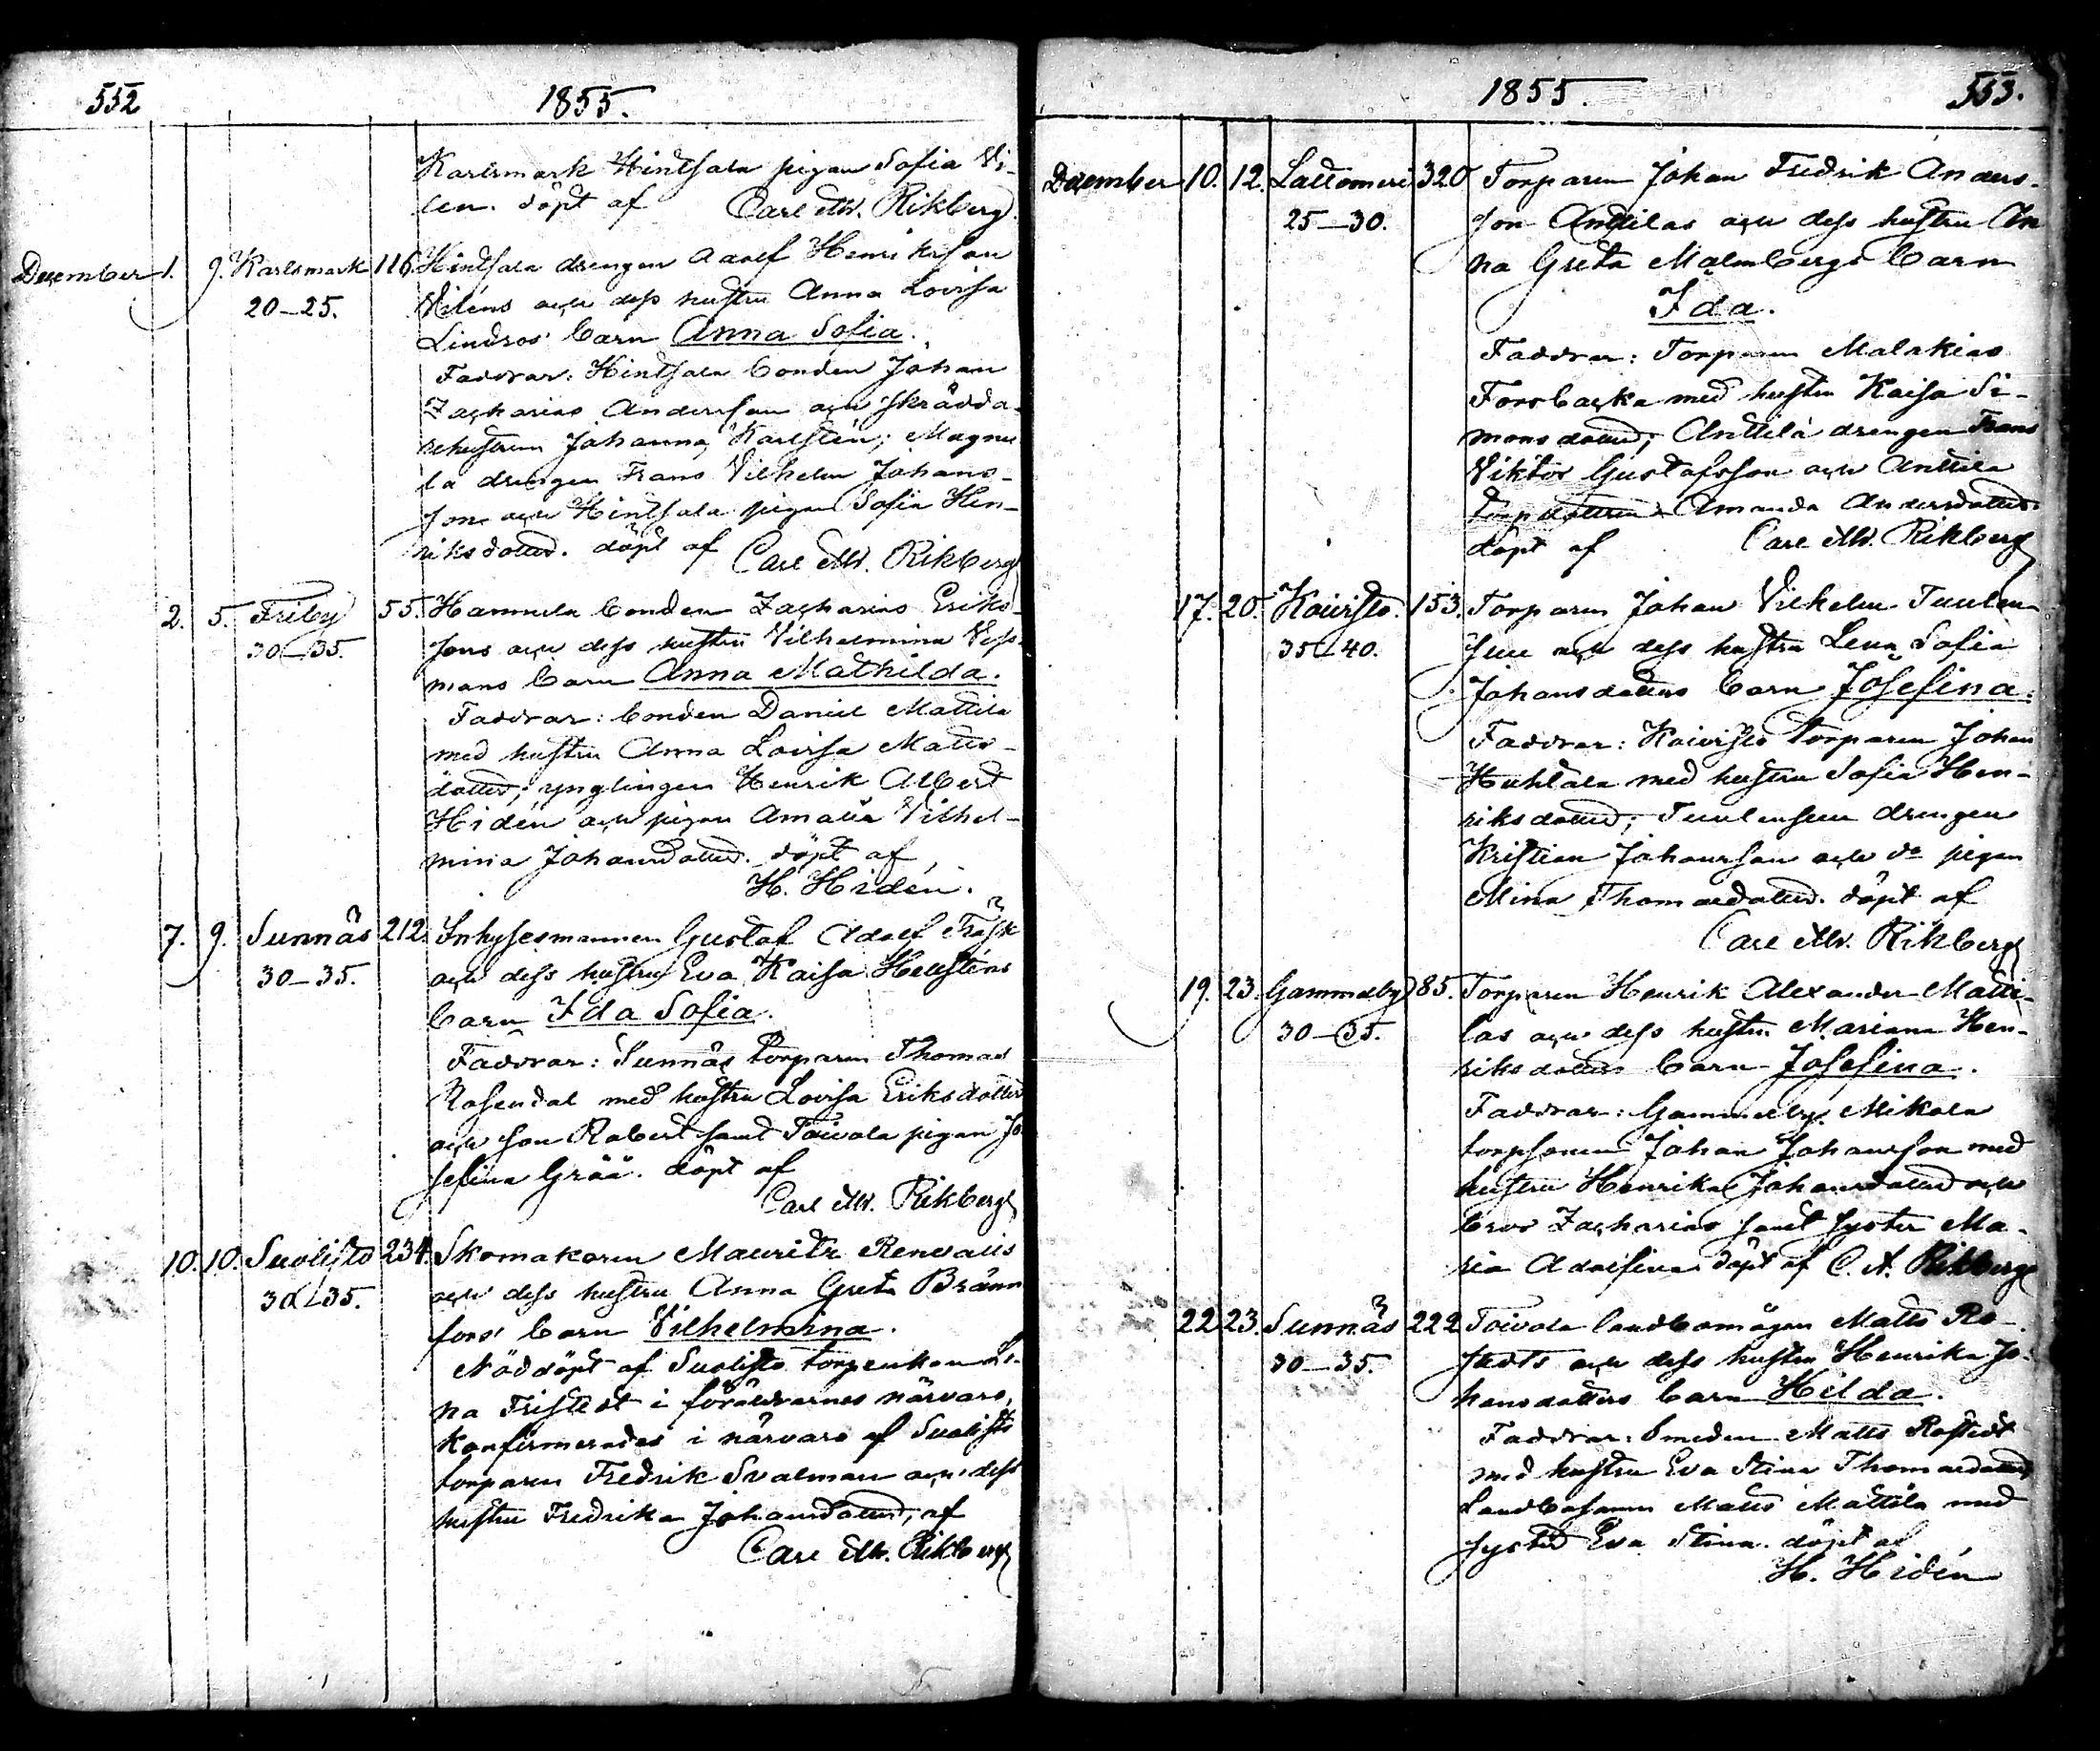 552
1855.
Karlsmark Hintsala pigan Sofia Vi-
len. döpt af Carl M. Rikberg.
December 1. 9. Karlsmark 116 Hintsala drengen Adolf Henriksson
20–25. Viléns och dess hustru Anna Lovisa
Lindros' barn Anna Sofia.
Faddrar: Hintsala bonden Johan
Zacharias Andersson och skrädda-
rehustrun Johanna Karlstén; Magnu
la drengen Frans Vilhelm Johans-
son och Hintsala pigan Sofia Hen-
riksdotter. döpt af Carl M. Rikberg
2. 5. Friby 55. Hannula bonden Zacharias Eriks-
30–35. sons och dess hustru Vilhelmina Vess-
mans barn Anna Mathilda.
Faddrar: bonden Daniel Mattila
med hustru Anna Lovisa Matts-
dotter; ynglingen Henrik Albert
Hidén och pigan Amalia Vilhel-
mina Johansdotter. döpt af
H. Hidén.
7. 9. Sunnäs 212. Inhysesmannen Gustaf Adolf Träsk
30–35. och dess hustru Eva Kaisa Hellsténs
barn Ida Sofia.
Faddrar: Sunnäs torparen Thomas
Rosendal med hustru Lovisa Eriksdotter
och son Robert samt Toivola pigan Jo
sefina Grää. döpt af
Carl M. Rikberg
10. 10. Suolisto 234. Skomakaren Mauritz Renvalls
30–35. och dess hustru Anna Greta Bränn
fors' barn Vilhelmina.
Nöddöpt af Suolisto torpenkan Le-
na Fristedt i föräldrarnes närvaro,
Konfirmerades i närvaro af Suolisto
torparen Fredrik Svalman och dess
hustru Fredrika Johansdotter, af
Carl M. Rikberg
1855.
553.
December 10. 12. Lattomeri 320 Torparen Johan Fredrik Anders-
25–30. son Anttilas och dess hustru An
na Greta Malmbergs barn
Ida.
Faddrar: Torparen Malakias
Forsbacka med hustru Kaisa Si-
monsdotter; Anttila drengen Frans
Viktor Gustafsson och Anttila
torpdottren Amanda Andersdotter.
döpt af Carl M. Rikberg
17. 20. Koivisto. 153. Torparen Johan Vilhelm Tuulen-
35–40. suu och dess hustru Lena Sofia
Johansdotters barn Josefina.
Faddrar: Koivisto torparen Johan
Huhtala med hustru Sofia Hen-
riksdotter; Tuulensuu drengen
Kristian Johansson och do pigan
Mina Thomasdotter. döpt af
Carl M. Rikberg
19. 23. Gammelby 85. Torparen Henrik Alexander Matti-
30–35. las och dess hustru Mariana Hen-
riksdotters barn Josefina.
Faddrar: Gammelby Mikola
torpsonen Johan Johansson med
hustru Henrika Johansdotter och
bror Zacharias samt syster Ma-
ria Adolfina döpt af C. A. Rikberg
22. 23. Sunnäs 222 Toivola landbomågen Matts Ro-
30–35. stedts och dess hustru Henrika Jo-
hansdotters barn Hilda.
Faddrar: Smeden Matts Rostedt
med hustru Eva Stina Thomasdotter
Landbosonen Matts Mattila med
syster Eva Stina. döpt af
H. Hidén